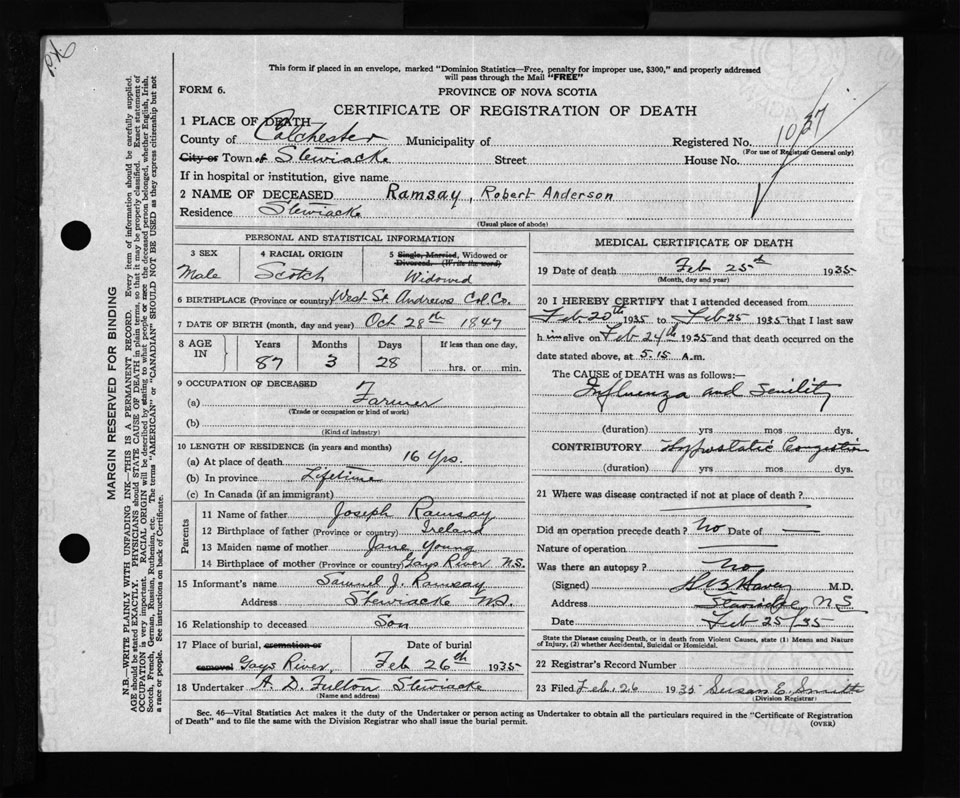 This form if placed in an envelope, marked "Dominion Statistics—Free, penalty for improper use, $300," and properly addressed
will pass through the Mail "FREE"
FORM 6.
PROVINCE OF NOVA SCOTIA
CERTIFICATE OF REGISTRATION OF DEATH
1 PLACE OF DEATH
County of Colchester Municipality of Registered No. 1037
(For use of Registrar General only)
City or Town of Stewiacke Street House No.
If in hospital or institution, give name
2 NAME OF DECEASED Ramsay, Robert Anderson
Residence Stewiacke
(Usual place of abode)
MARGIN RESERVED FOR BINDING
N.B.—WRITE PLAINLY WITH UNFADING INK—THIS IS A PERMANENT RECORD. Every item of information should be carefully supplied.
AGE should be stated EXACTLY. PHYSICIANS should STATE CAUSE OF DEATH in plain terms, so that it may be properly classified. Exact statement of
OCCUPATION is very important. RACIAL ORIGIN will be described by stating to what people or race the deceased person belonged, whether English, Irish,
Scotch, French, German, Russian, Ruthenian, etc. The terms "AMERICAN" or "CANADIAN" SHOULD NOT BE USED as they express citizenship but not
a race or people. See instructions on back of Certificate.
PERSONAL AND STATISTICAL INFORMATION
3 SEX 4 RACIAL ORIGIN 5 Single, Married, Widowed or
Divorced. (Write the word)
Male Scotch Widowed
6 BIRTHPLACE (Province or country) West St. Andrews Col. Co.
7 DATE OF BIRTH (month, day and year) Oct 28th 1847
8 AGE IN Years Months Days If less than one day.
87 3 28 hrs. or min.
9 OCCUPATION OF DECEASED
(a) Farmer
(Trade or occupation or kind of work)
(b)
(Kind of industry)
10 LENGTH OF RESIDENCE (in years and months)
(a) At place of death 16 yrs.
(b) In province Lifetime
(c) In Canada (if an immigrant)
Parents
11 Name of father Joseph Ramsay
12 Birthplace of father (Province or country) Ireland
13 Maiden name of mother Jane Young
14 Birthplace of mother (Province or country) Gays River N.S.
15 Informant's name Samuel J. Ramsay
Address Stewiacke N.S.
16 Relationship to deceased Son
17 Place of burial, cremation or Date of burial
removal Gays River Feb 26th 1935
18 Undertaker A. D. Fulton Stewiacke
(Name and address)
MEDICAL CERTIFICATE OF DEATH
19 Date of death Feb 25th 1935
(Month, day and year)
20 I HEREBY CERTIFY that I attended deceased from
Feb. 20th 1935 to Feb 25 1935 that I last saw
h im alive on Feb 24th 1935 and that death occurred on the
date stated above, at 5.15 A.m.
The CAUSE of DEATH was as follows:—
Influenza and Senility
(duration) yrs mos dys.
CONTRIBUTORY Hypostatic Congestion
(duration) yrs mos dys.
21 Where was disease contracted if not at place of death?
Did an operation precede death? No Date of —
Nature of operation —
Was there an autopsy? No
(Signed) M.D.
Address Stewiacke, N.S.
Date Feb 25/35
State the Disease causing Death, or in death from Violent Causes, state (1) Means and Nature
of Injury, (2) whether Accidental, Suicidal or Homicidal.
22 Registrar's Record Number
23 Filed Feb. 26 1935 Susan E. Smith
(Division Registrar)
Sec. 46—Vital Statistics Act makes it the duty of the Undertaker or person acting as Undertaker to obtain all the particulars required in the "Certificate of Registration
of Death" and to file the same with the Division Registrar who shall issue the burial permit.
(OVER)